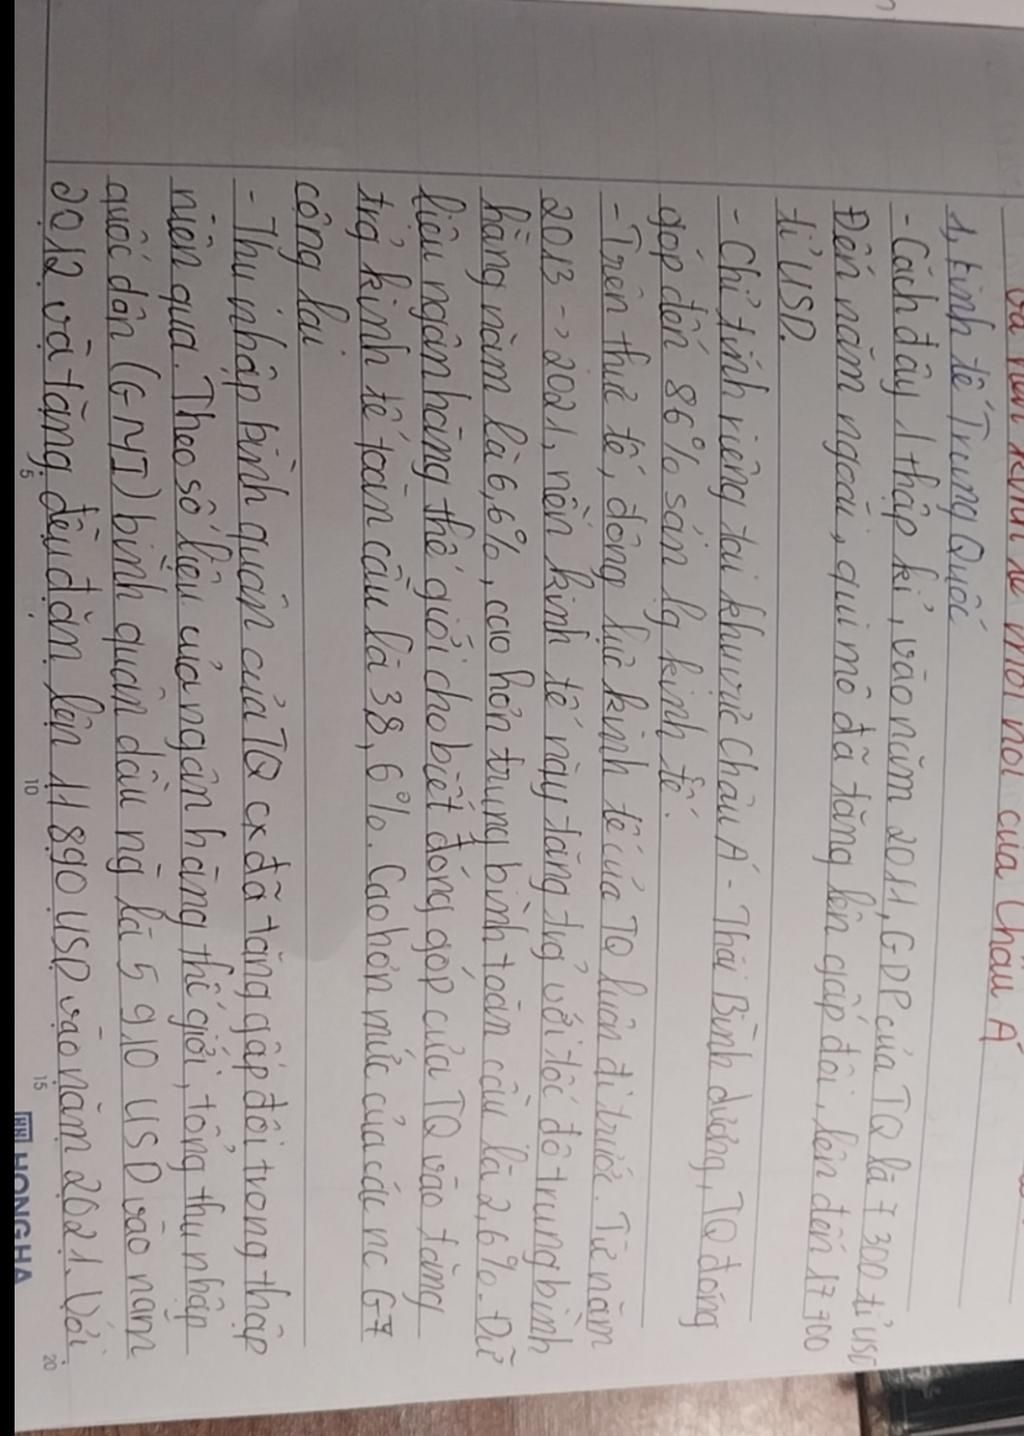 và nền kinh tế mới nổi của Châu Á
1, Kinh tế Trung Quốc
- Cách đây 1 thập kỉ, vào năm 2011, GDP của TQ là 7300 tỉ USD
Đến năm ngoái, qui mô đã tăng lên gấp đôi, lên đến 17 700
tỉ USD.
- Chỉ tính riêng tại khu vực Châu Á - Thái Bình dương, TQ đóng
góp đến 86% sản lg kinh tế.
- Trên thực tế, động lực kinh tế của TQ luôn đi trước. Từ năm
2013 -> 2021, nền kinh tế này tăng trg̉ với tốc độ trung bình
hằng năm là 6,6%, cao hơn trung bình toàn cầu là 2,6%. Dữ
liệu ngân hàng thế giới cho biết đóng góp của TQ vào tăng
trg̉ kinh tế toàn cầu là 38,6%. Cao hơn mức của các nc G7
cộng lại.
- Thu nhập bình quân của TQ cx đã tăng gấp đôi trong thập
niên qua. Theo số liệu của ngân hàng thế giới, tổng thu nhập
quốc dân (GNI) bình quân đầu ng là 5 910 USD vào năm
2012 và tăng đều đặn lên 11 890 USD vào năm 2021. Với
5 10 15 20
HH HONG HA